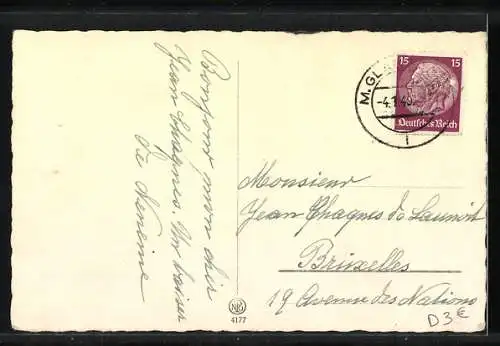 Bonjour mon chér
Jean Chagnes. Un baiser
de Neneine
15 15
Deutsches Reich
M.GL
-4.1.40
1
Monsieur
Jean Chagnes de Launoit
Bruxelles
19 Avenue des Nations
NPG
4177
D3€